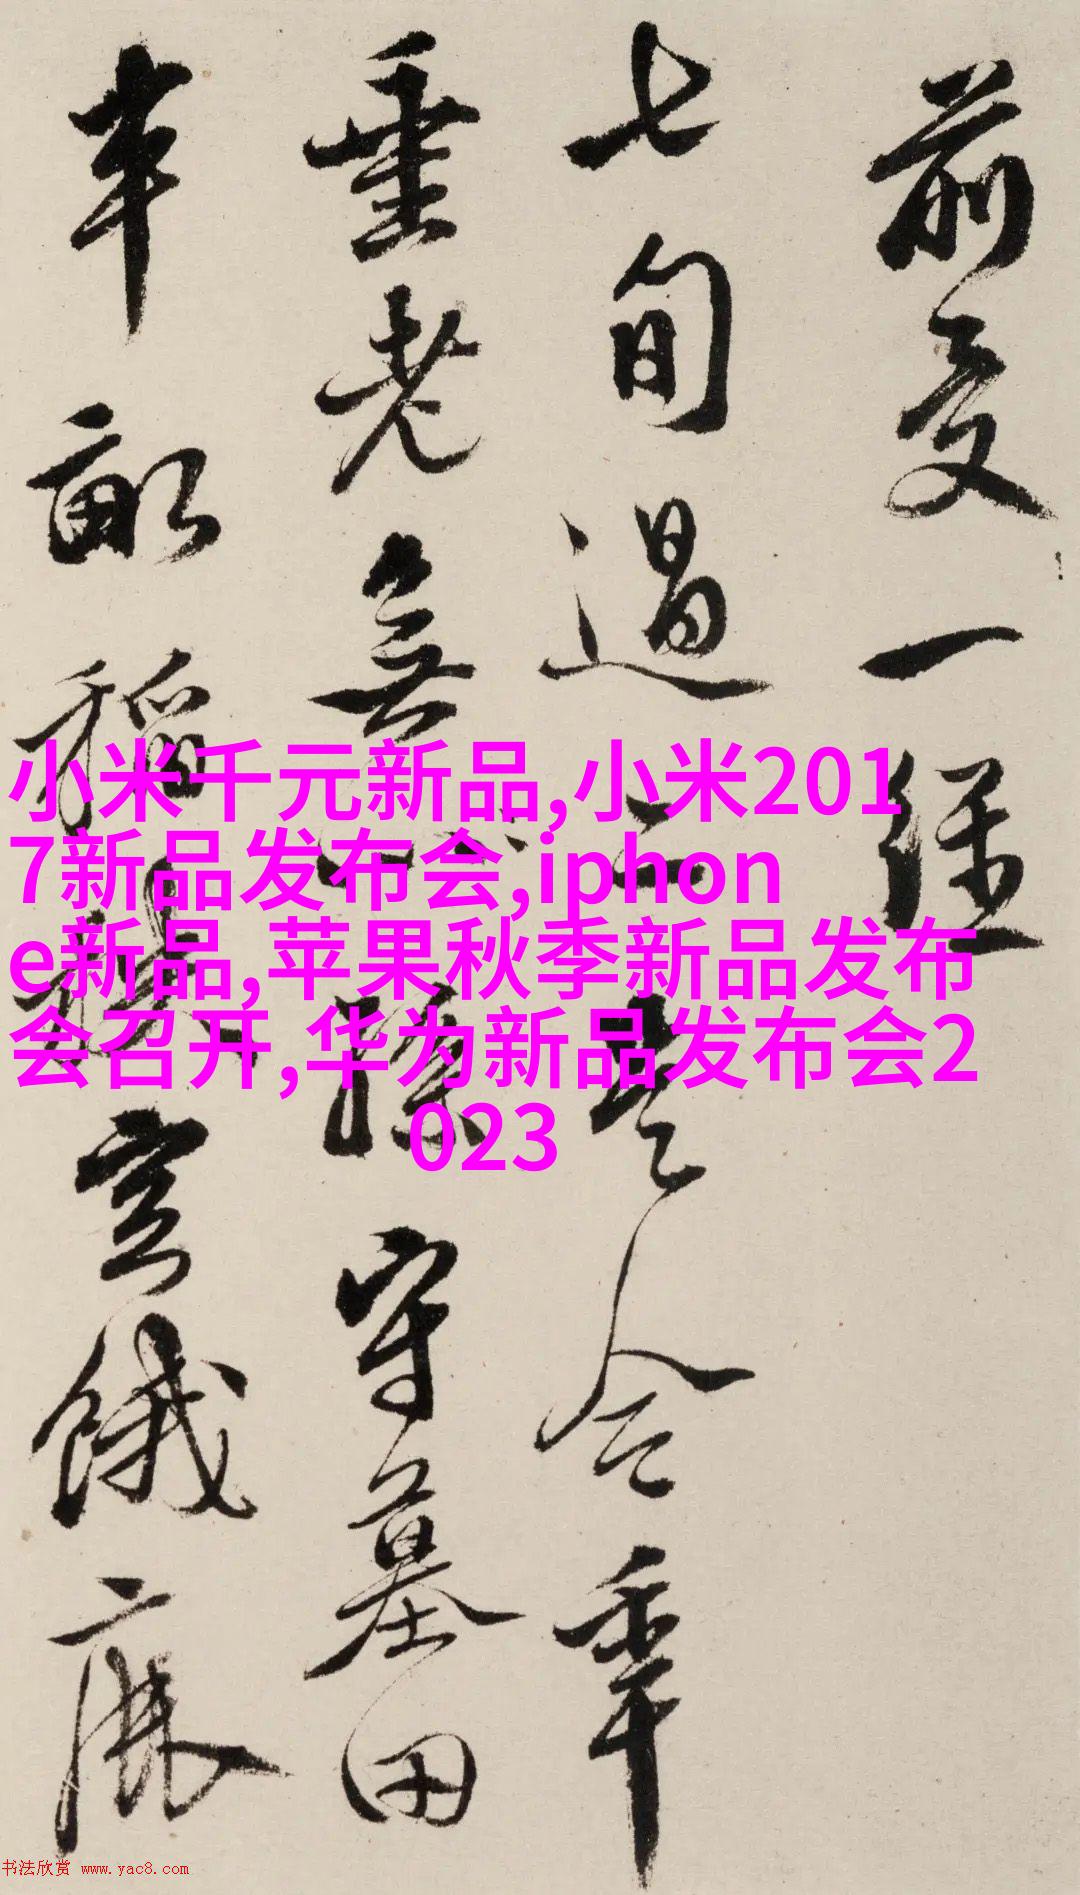 前受一
七旬過二是今年
垂老無孫守墓田
半畝稻空餓
小米千元新品,小米201
7新品发布会,iphon
e新品,苹果秋季新品发布
会召开,华为新品发布会2
023
书法欣赏 www.yac8.com